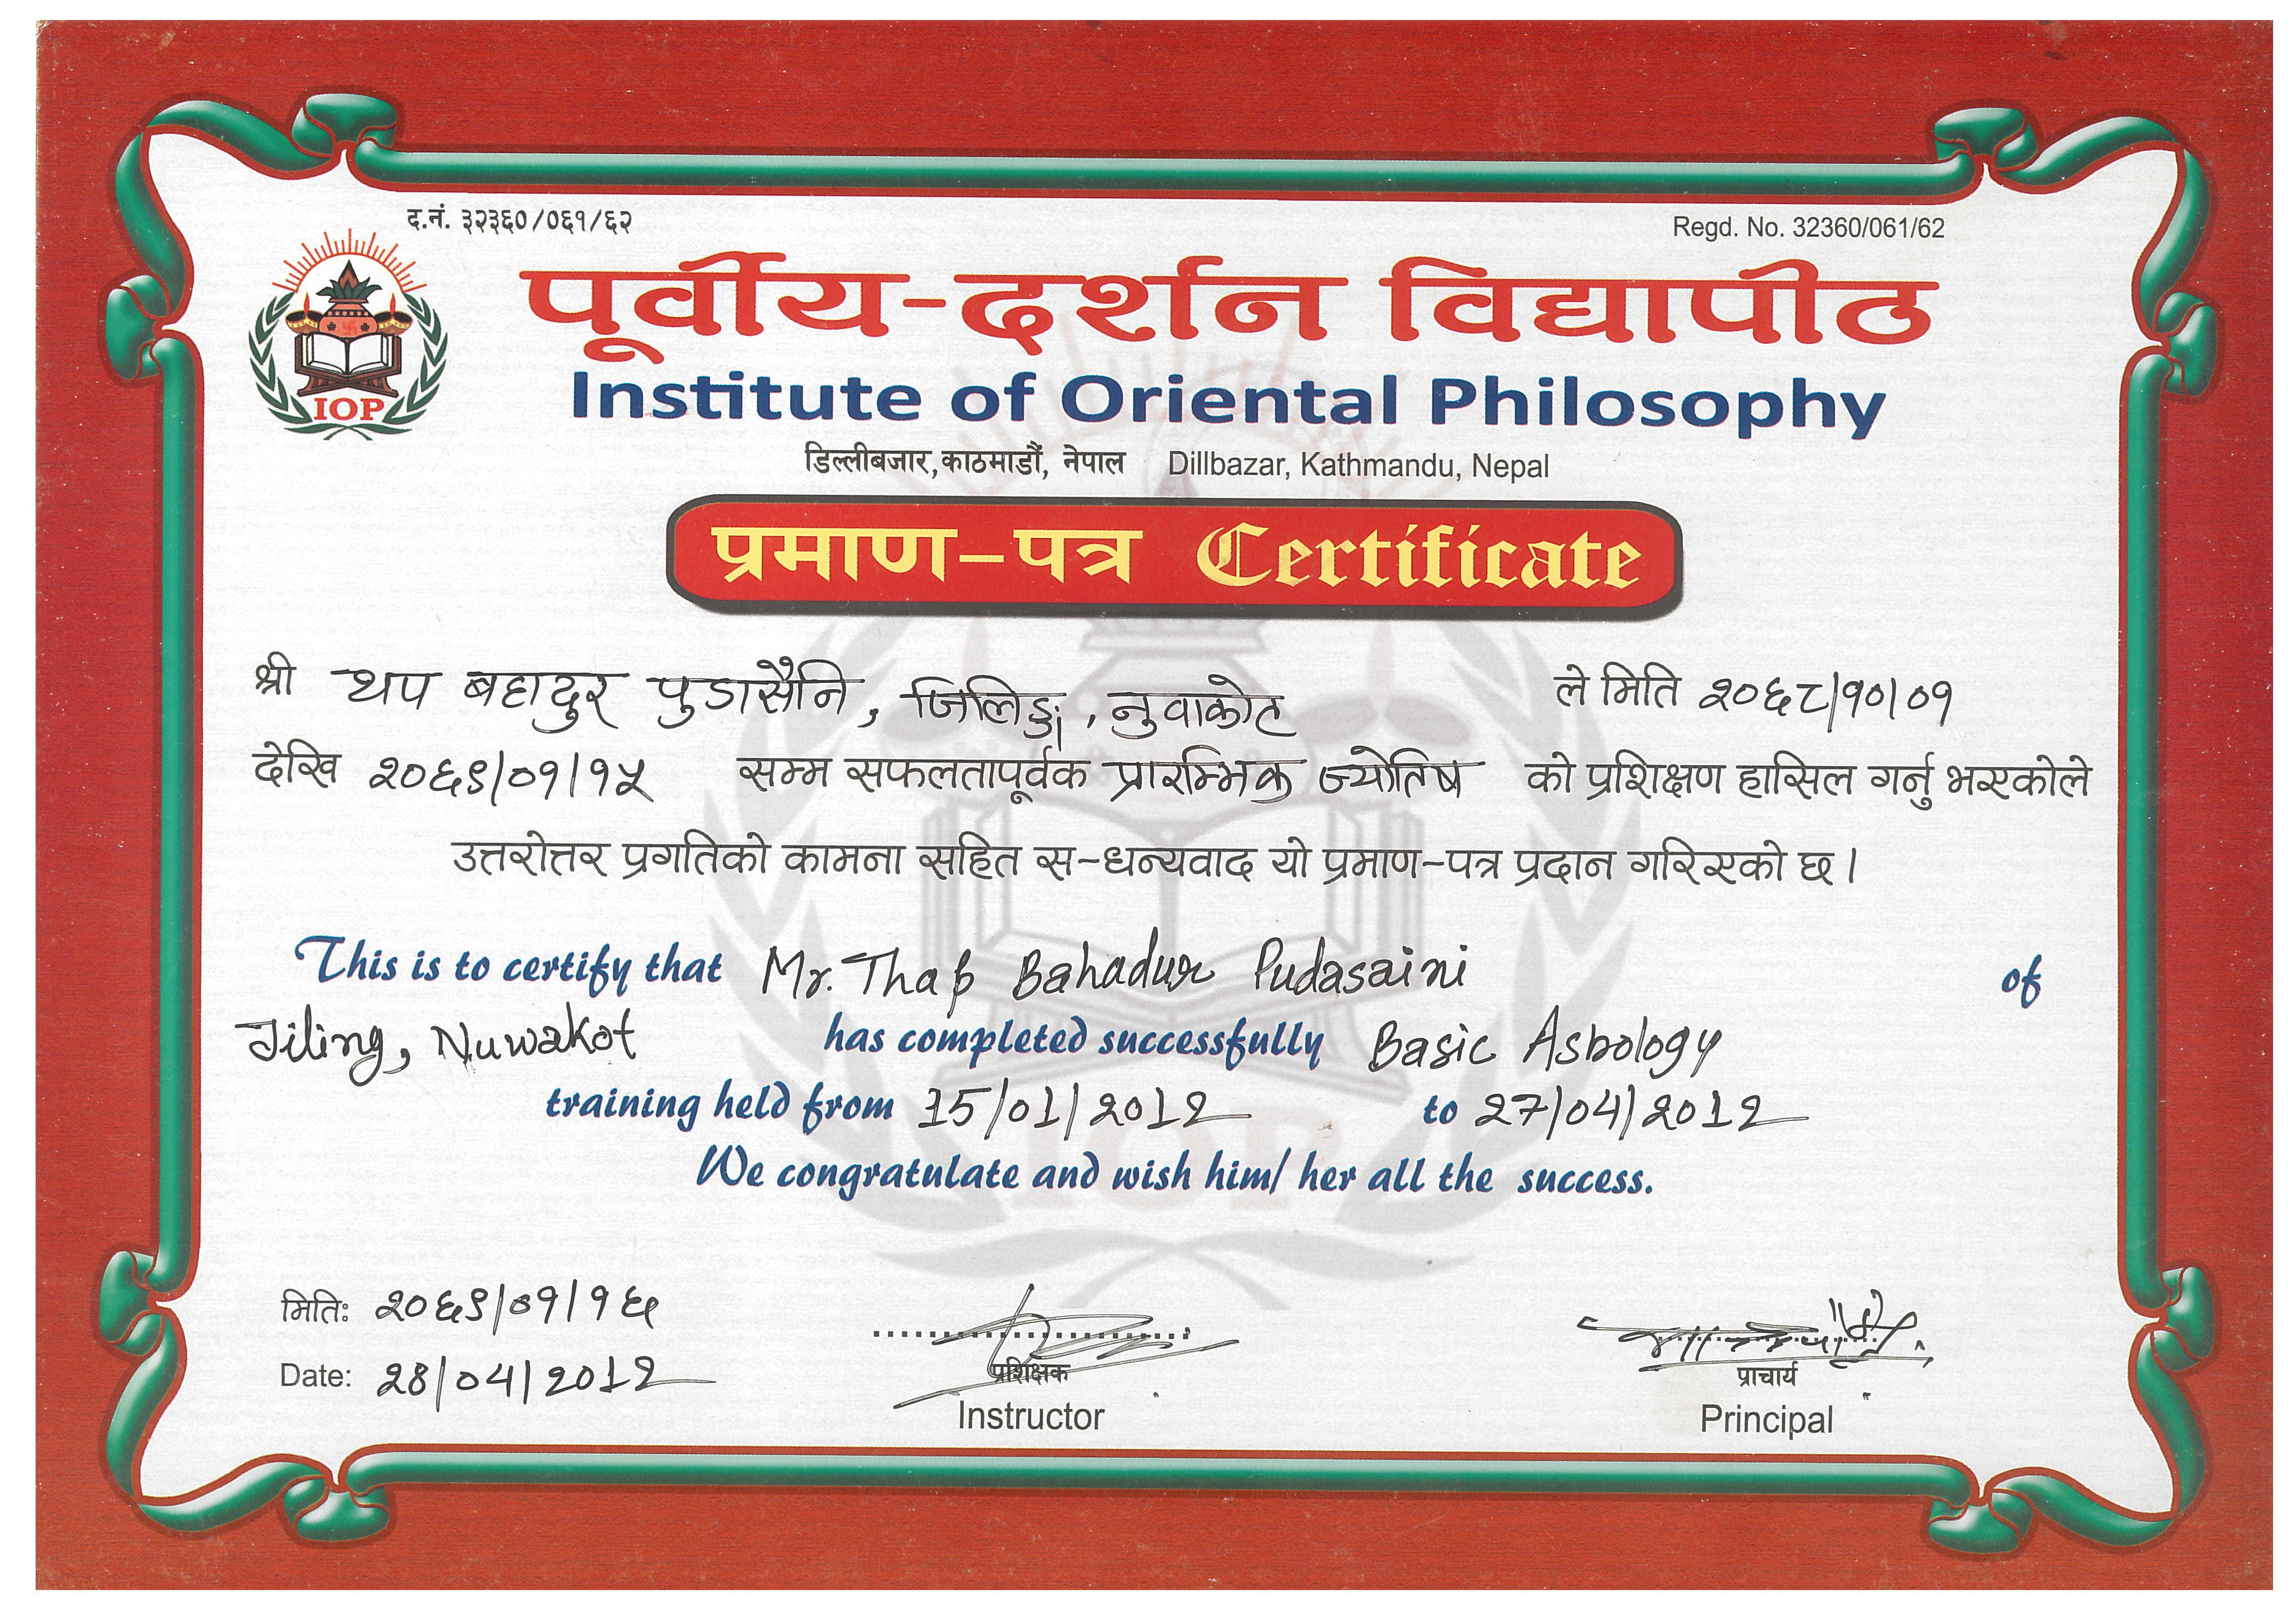 द.नं. ३२३६०/०६१/६२
Regd. No. 32360/061/62
पूर्वीय-दर्शन विद्यापीठ
IOP
Institute of Oriental Philosophy
डिल्लीबजार, काठमाडौं, नेपाल Dillbazar, Kathmandu, Nepal
प्रमाण-पत्र Certificate
श्री थप बहादुर पुडासैनि, जिलिङ्ग, नुवाकोट ले मिति २०६८/१०/०१
देखि २०६९/०१/१५ सम्म सफलतापूर्वक प्रारम्भिक ज्योतिष को प्रशिक्षण हासिल गर्नु भएकोले
उत्तरोत्तर प्रगतिको कामना सहित स-धन्यवाद यो प्रमाण-पत्र प्रदान गरिएको छ।
This is to certify that Mr. Thap Bahadur Pudasaini of
Jiling, Nuwakot has completed successfully Basic Astrology
training held from 15/01/2012 to 27/04/2012
We congratulate and wish him/ her all the success.
मिति: २०६९/०१/१६
Date: 28/04/2012
प्रशिक्षक
Instructor
प्राचार्य
Principal